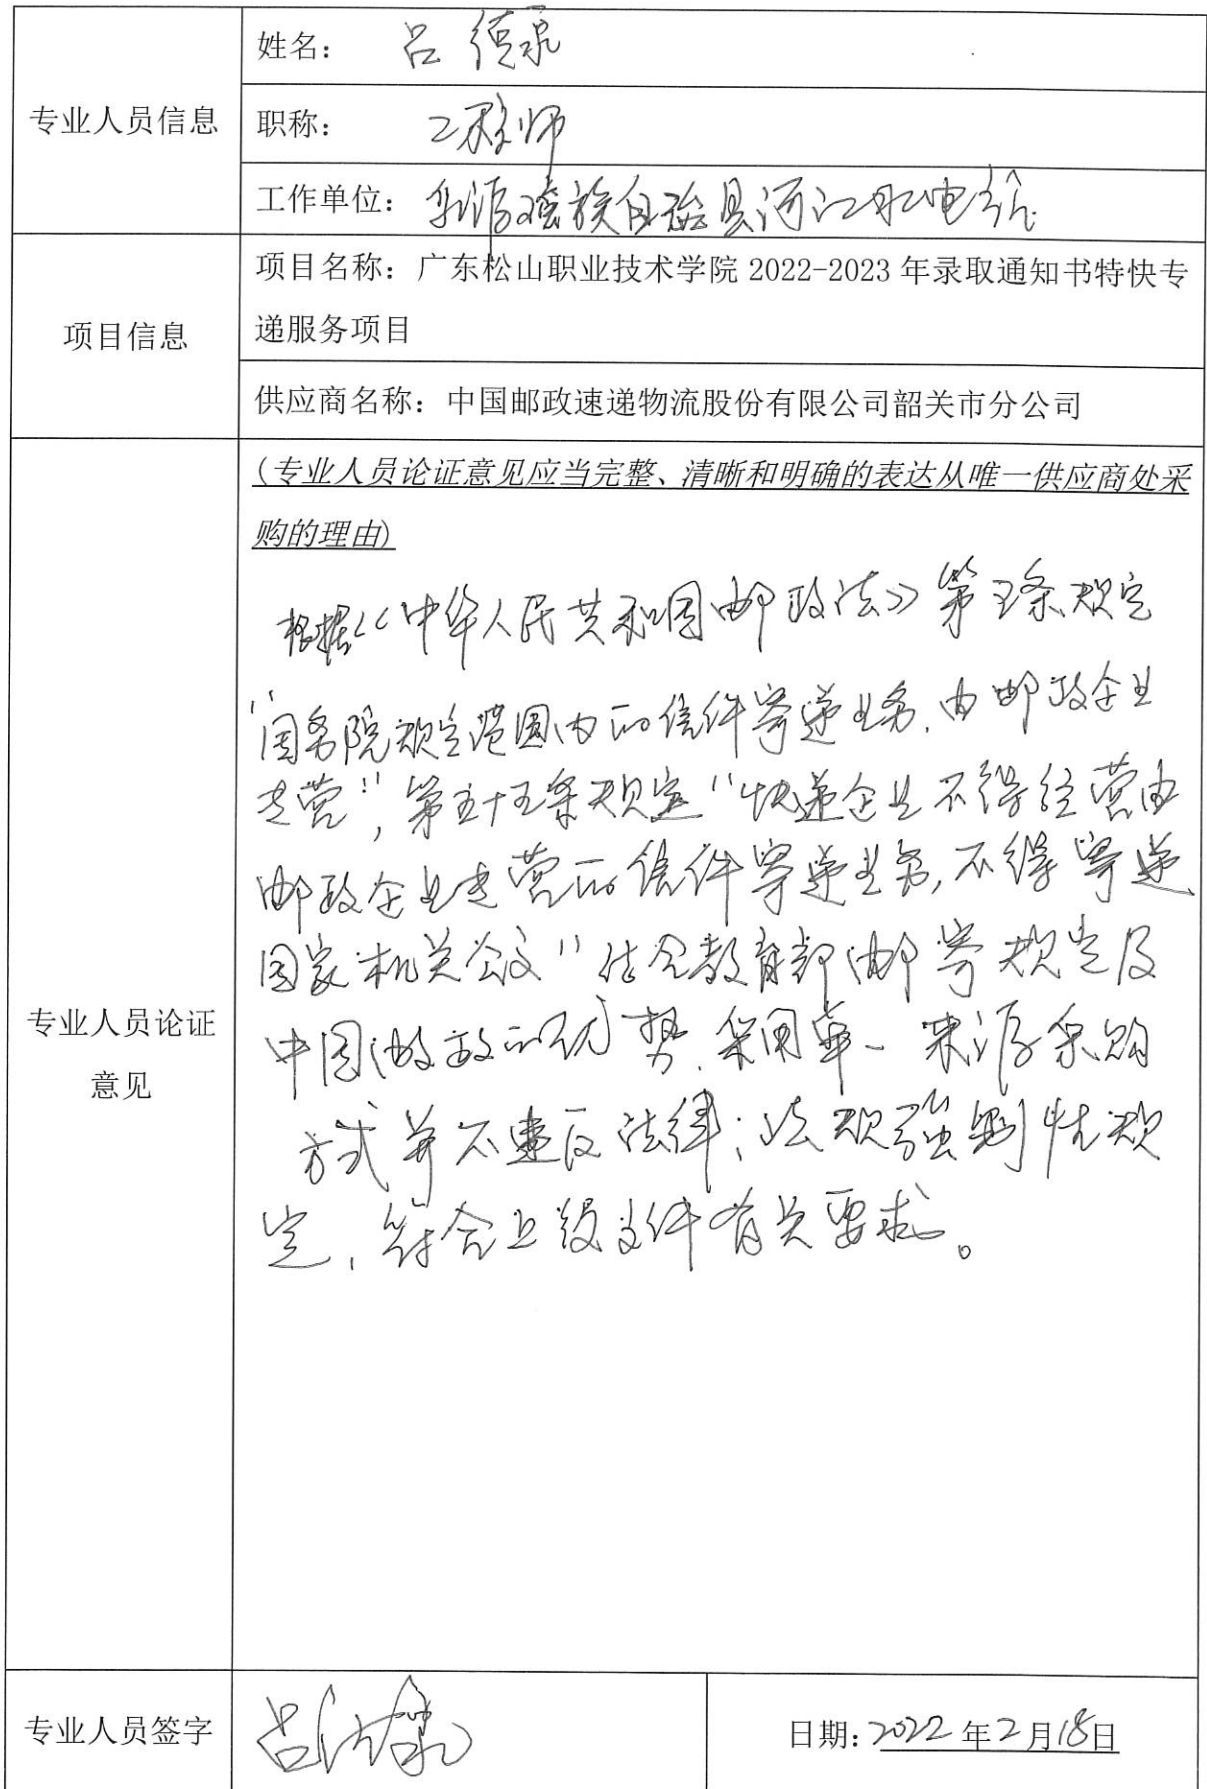 姓名： 吕德
专业人员信息
职称： 工程师
工作单位： 乳源瑶族自治县河江水电站
项目名称：广东松山职业技术学院 2022-2023 年录取通知书特快专
项目信息
递服务项目
供应商名称：中国邮政速递物流股份有限公司韶关市分公司
(专业人员论证意见应当完整、清晰和明确的表达从唯一供应商处采
购的理由)
根据《中华人民共和国邮政法》第五条规定
"国务院规定范围内的信件寄递业务，由邮政企业
专营"，第五十五条规定"快递企业不得经营由
邮政企业专营的信件寄递业务，不得寄递
国家机关公文"结合教育部邮寄规定及
专业人员论证
中国邮政的优势，采用单一来源采购
意见
方式并不违反法律；法规强制性规
定，符合上级文件有关要求。
专业人员签字 吕德
日期：2022年2月18日